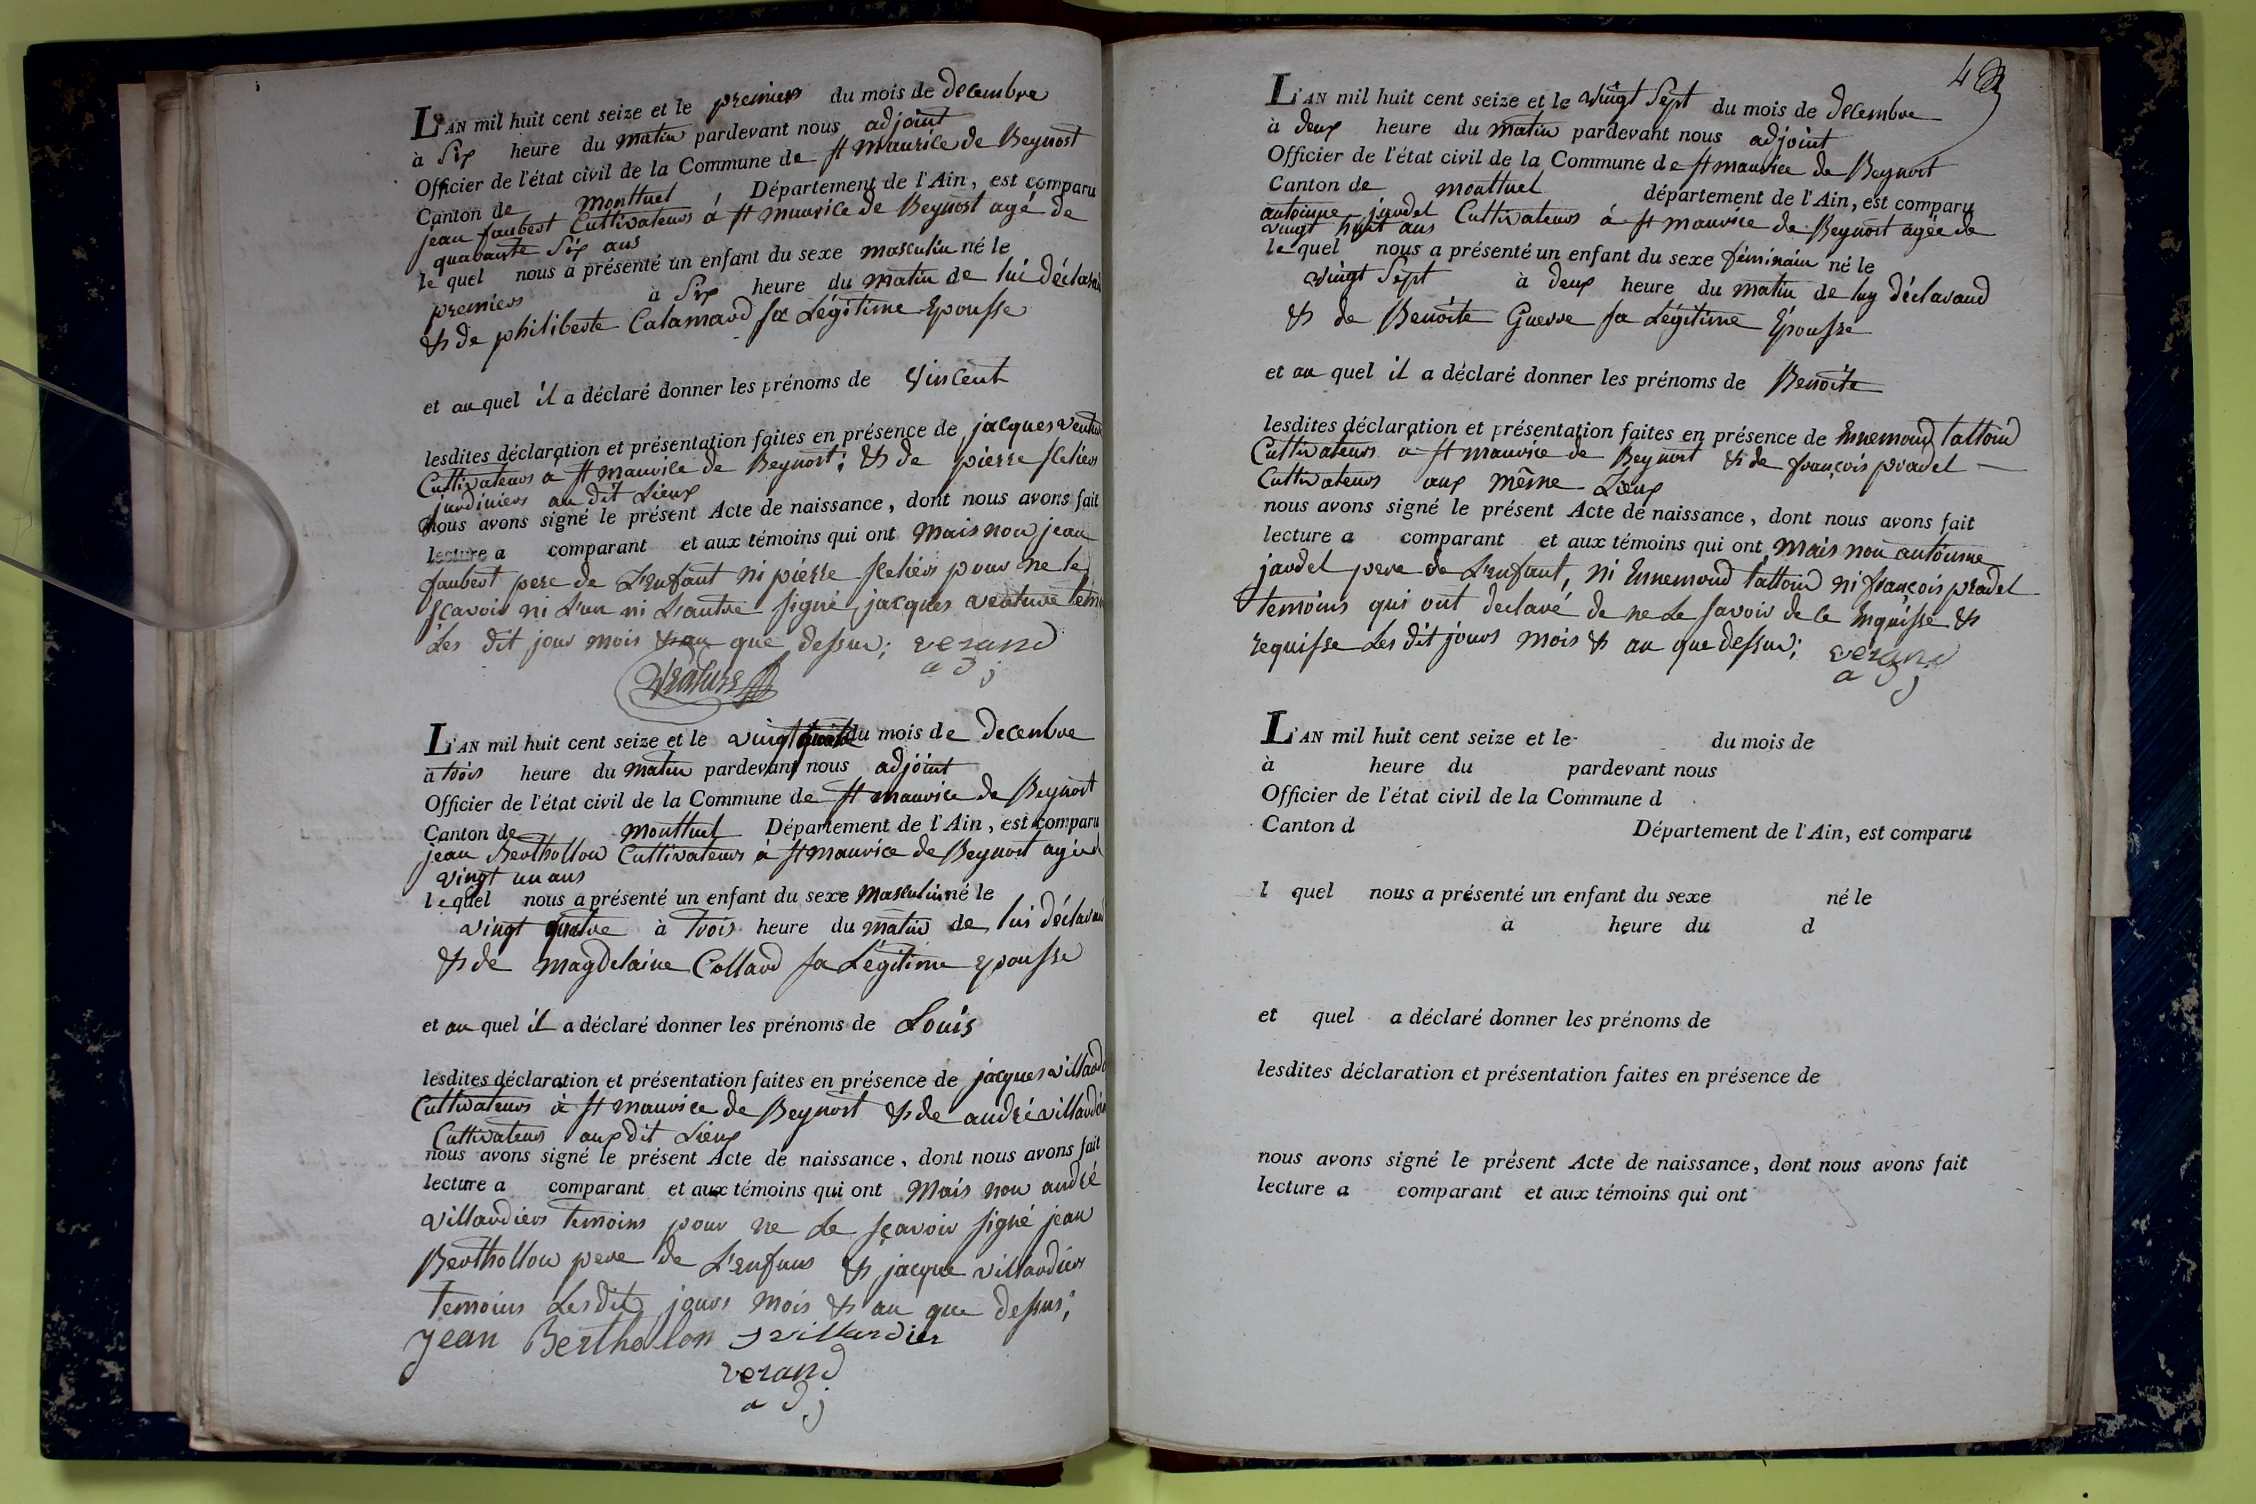 L'AN mil huit cent seize et le premier du mois de decembre
à Six heure du matin pardevant nous adjoint
Officier de l'état civil de la Commune de St maurice de Beynost
Canton de montluel Département de l'Ain, est comparu
jean faubert Cultivateur à St maurice de Beynost agé de
quarante Six ans
le quel nous a présenté un enfant du sexe masculin né le
premier à Six heure du matin de lui déclarant
& de philiberte Calamard sa Légitime Epousse
et au quel il a déclaré donner les prénoms de Vincent
lesdites déclaration et présentation faites en présence de jacques venture
Cultivateur à St maurice de Beynost; & de pierre
jardinier au dit Lieux
nous avons signé le présent Acte de naissance, dont nous avons fait
lecture a comparant et aux témoins qui ont mais non jean
faubert pere de L'enfant ni pierre pour ne le
sçavoir ni L'un ni L'autre signé, jacques venture temoin
Les dit jour mois & an que dessus; verand
adj
L'AN mil huit cent seize et le vingt quatre du mois de decembre
à trois heure du matin pardevant nous adjoint
Officier de l'état civil de la Commune de St maurice de Beynost
Canton de Montluel Département de l'Ain, est comparu
jean Berthollon Cultivateur à St maurice de Beynost agé de
vingt un ans
lequel nous a présenté un enfant du sexe Masculin né le
vingt quatre à trois heure du matin de lui déclarant
& de magdelaine Collard sa Légitime epousse
et au quel il a déclaré donner les prénoms de Louis
lesdites déclaration et présentation faites en présence de jacques villardier
Cultivateur à St maurice de Beynost & de andré villardier
Cultivateur aux dit Lieux
nous avons signé le présent Acte de naissance, dont nous avons fait
lecture a comparant et aux témoins qui ont Mais non andré
villardier temoins pour ne le sçavoir signé jean
Berthollon pere de L'enfans & jacque villardier
temoins Lesdit jours mois & an que dessus;
jean Berthollon j villardier
verand
adj
L'AN mil huit cent seize et le vingt Sept du mois de decembre
à deux heure du matin pardevant nous adjoint
Officier de l'état civil de la Commune de St maurice de Beynost
Canton de montluel département de l'Ain, est comparu
antoinne jardel Cultivateur à St maurice de Beynost agée de
vingt huit ans
le quel nous a présenté un enfant du sexe féminain né le
vingt Sept à deux heure du matin de luy déclarand
& de Benoite Guerre sa Légitime Épousse
et au quel il a déclaré donner les prénoms de Benoite
lesdites déclaration et présentation faites en présence de Ennemond tattoud
Cultivateur à St maurice de Beynost & de françois pradel
Cultivateur aux même Lieux
nous avons signé le présent Acte de naissance, dont nous avons fait
lecture a comparant et aux témoins qui ont Mais non antoinne
jardel pere de L'enfant, ni Ennemond tattoud ni françois pradel
temoins qui ont declaré de ne Le savoir de ce Enquisse &
requisse Les dit jours mois & an que dessus; verand
adj
L'AN mil huit cent seize et le du mois de
à heure du pardevant nous
Officier de l'état civil de la Commune d
Canton d Département de l'Ain, est comparu
l quel nous a présenté un enfant du sexe né le
à heure du d
et quel a déclaré donner les prénoms de
lesdites déclaration et présentation faites en présence de
nous avons signé le présent Acte de naissance, dont nous avons fait
lecture a comparant et aux témoins qui ont